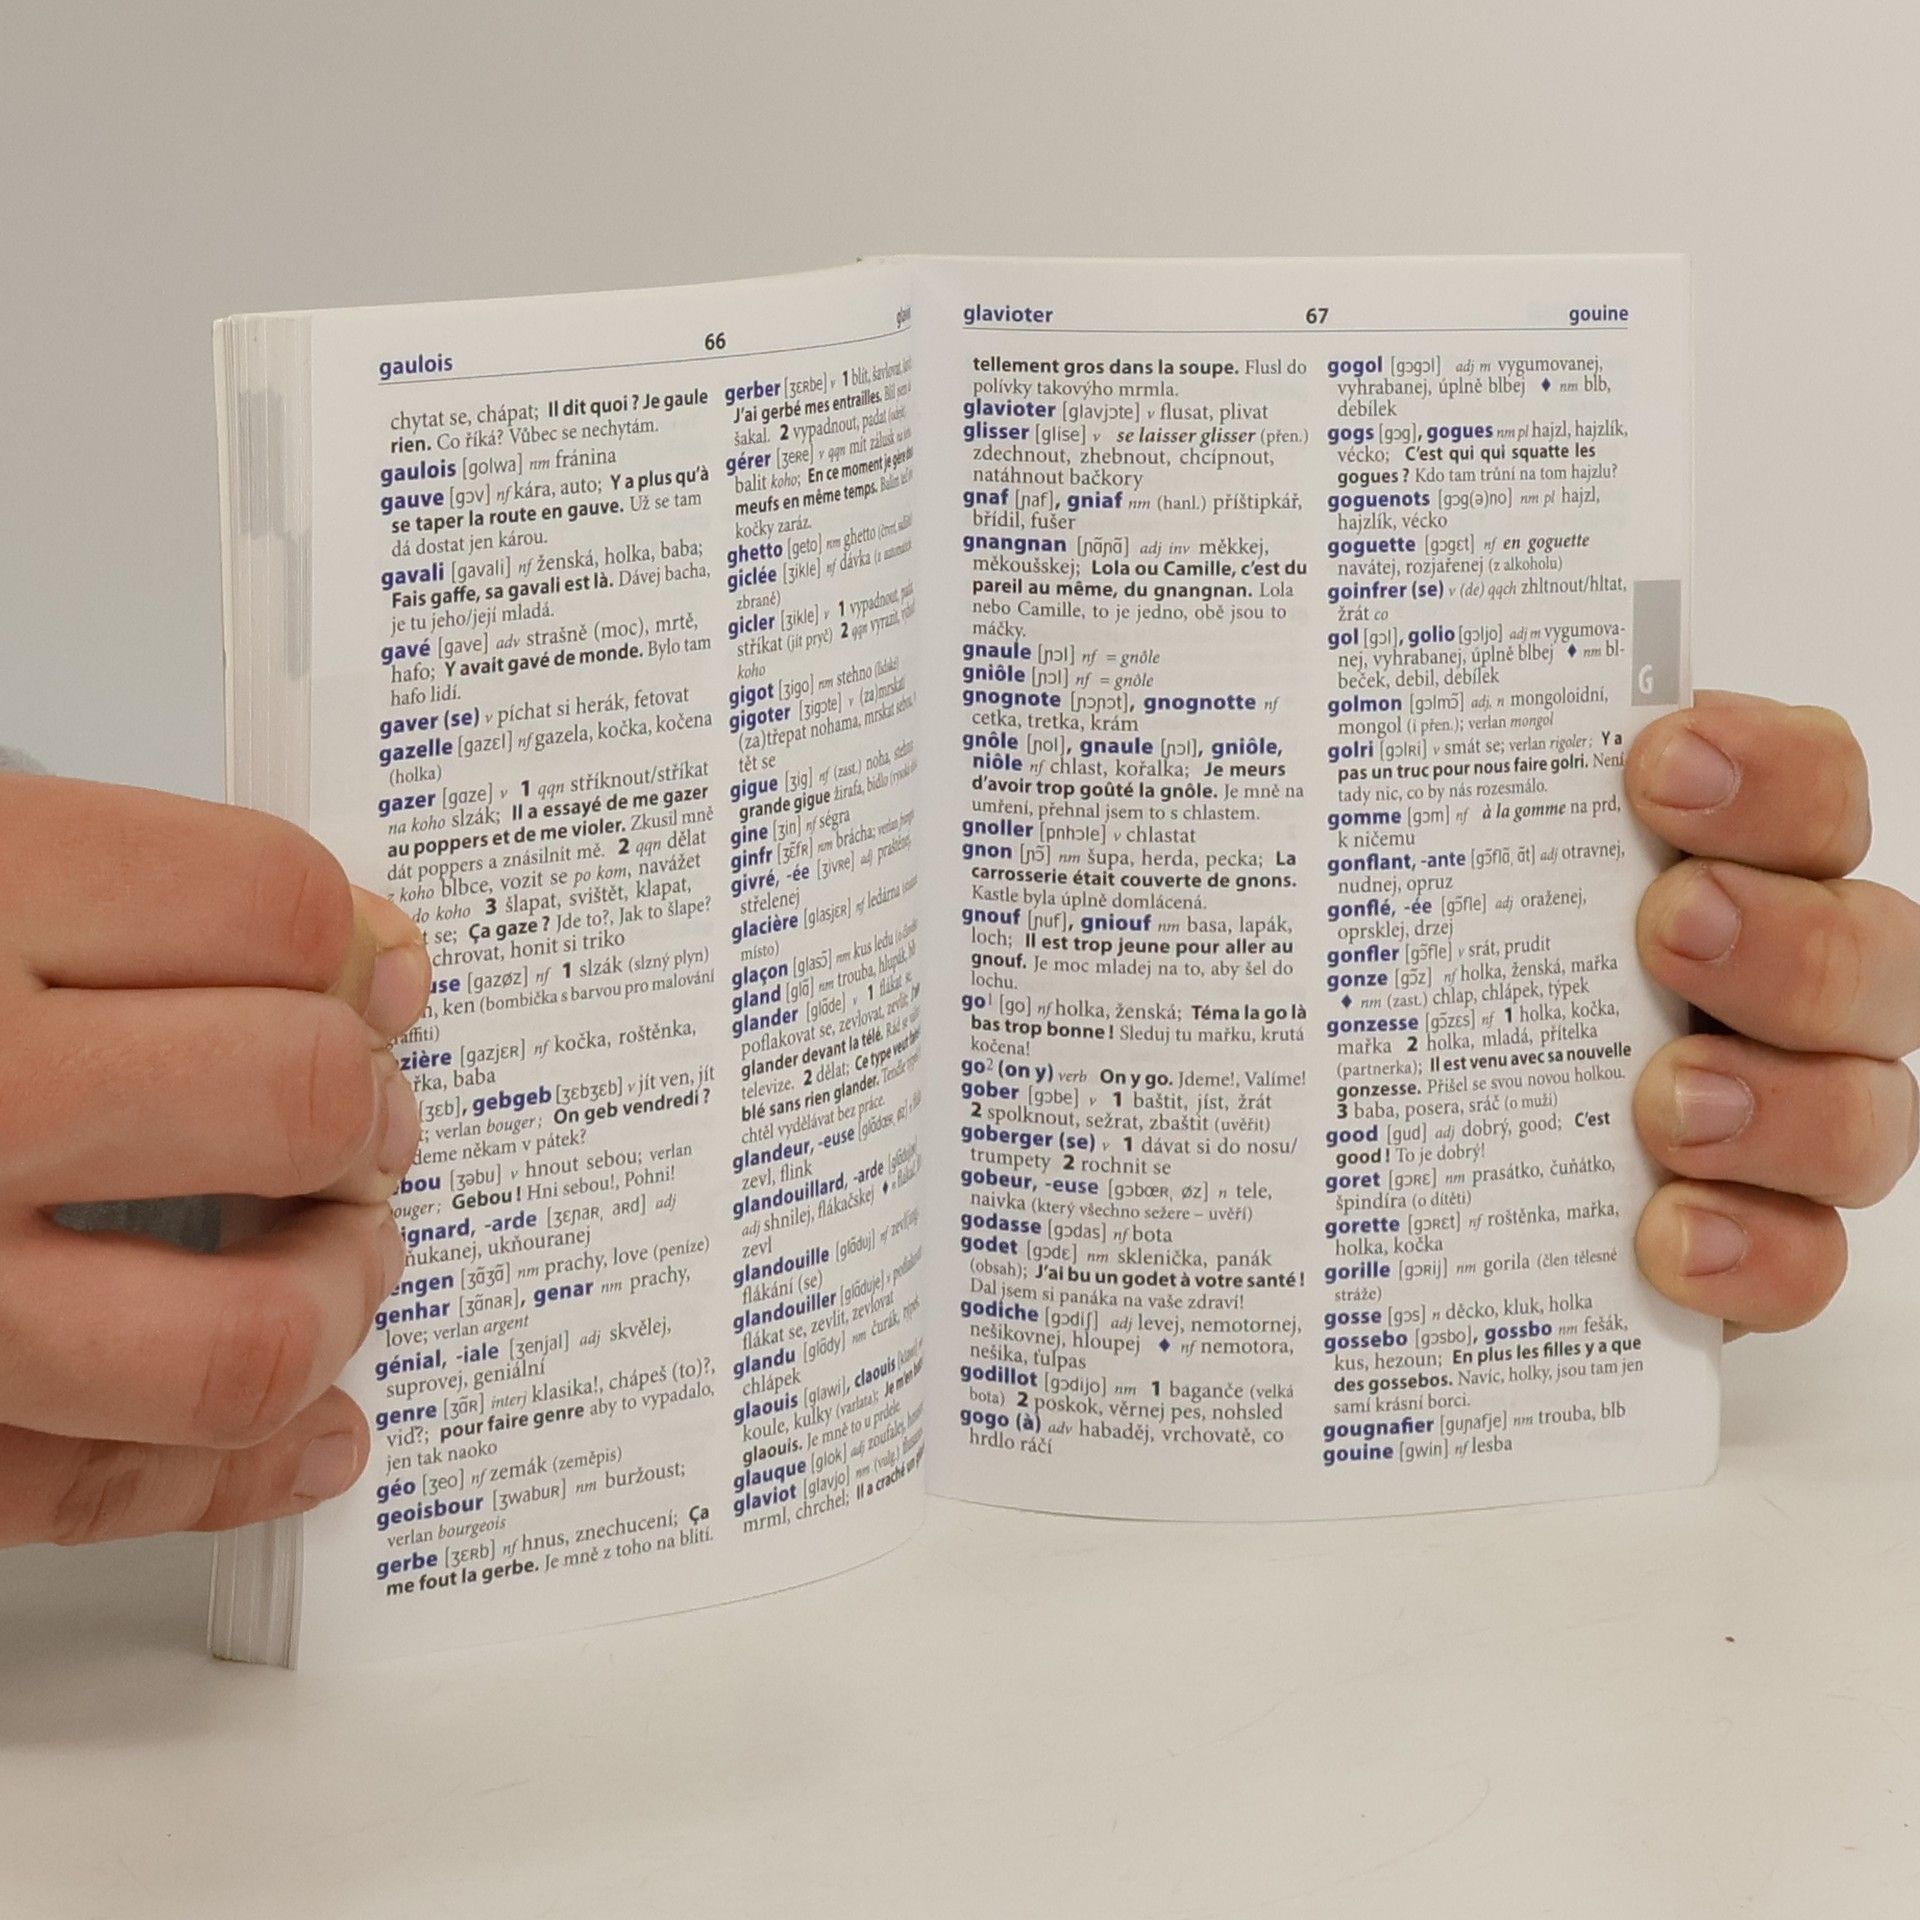 gaulois
66
chytat se, chápat; Il dit quoi ? Je gaule
rien. Co říká? Vůbec se nechytám.
gaulois [golwa] nm fránina
gauve [gɔv] nf kára, auto; Y a plus qu’à
se taper la route en gauve. Už se tam
dá dostat jen károu.
gavali [gavali] nf ženská, holka, baba;
Fais gaffe, sa gavali est là. Dávej bacha,
je tu jeho/její mladá.
gavé [gave] adv strašně (moc), mrtě,
hafo; Y avait gavé de monde. Bylo tam
hafo lidí.
gaver (se) v píchat si herák, fetovat
gazelle [gazɛl] nf gazela, kočka, kočena
(holka)
gazer [gɑze] v 1 qqn stříknout/stříkat
na koho slzák; Il a essayé de me gazer
au poppers et de me violer. Zkusil mně
dát poppers a znásilnit mě. 2 qqn dělat
z koho blbce, vozit se po kom, navážet
do koho 3 šlapat, svištět, klapat,
se; Ça gaze ? Jde to?, Jak to šlape?
chrovat, honit si triko
[gazøz] nf 1 slzák (slzný plyn)
ken (bombička s barvou pro malování
[gazjɛʀ] nf kočka, roštěnka,
baba
[ʒɛb], gebgeb [ʒɛbʒɛb] v jít ven, jít
verlan bouger; On geb vendredi ?
někam v pátek?
[ʒəbu] v hnout sebou; verlan
Gebou ! Hni sebou!, Pohni!
-arde [ʒɛɲaʀ, aʀd] adj
ukňouranej
[ʒɑ̃ʒɑ̃] nm prachy, love (peníze)
genhar [ʒɑ̃naʀ], genar nm prachy,
love; verlan argent
génial, -iale [ʒenjal] adj skvělej,
suprovej, geniální
genre [ʒɑ̃ʀ] interj klasika!, chápeš (to)?,
viď?; pour faire genre aby to vypadalo,
jen tak naoko
géo [ʒeo] nf zemák (zeměpis)
geoisbour [ʒwabuʀ] nm buržoust;
verlan bourgeois
gerbe [ʒɛʀb] nf hnus, znechucení; Ça
me fout la gerbe. Je mně z toho na blití.
gerber [ʒɛʀbe] v 1 blít, šavlovat,
J’ai gerbé mes entrailles.
šakal. 2 vypadnout, padat
gérer [ʒeʀe] v qqn mít zálusk
balit koho; En ce moment je gère
meufs en même temps. Balím
kočky zaráz.
ghetto [geto] nm ghetto
giclée [ʒikle] nf dávka (z automatické
zbraně)
gicler [ʒikle] v 1 vypadnout,
stříkat (jít pryč) 2 qqn vyrazit,
koho
gigot [ʒigo] nm stehno (lidské)
gigoter [ʒigɔte] v (za)mrskat
(za)třepat nohama, mrskat sebou,
tět se
gigue [ʒig] nf (zast.) noha,
grande gigue žirafa, bidlo
gine [ʒin] nf ségra
ginfr [ʒɛ̃fʀ] nm brácha; verlan
givré, -ée [ʒivʀe] adj praštěnej,
střelenej
glacière [glasjɛʀ] nf ledárna
místo)
glaçon [glasɔ̃] nm kus ledu
gland [glɑ̃] nm trouba, hlupák,
glander [glɑ̃de] v 1 flákat se,
poflakovat se, zevlovat, zevlit;
glander devant la télé.
televize. 2 dělat; Ce type veut
blé sans rien glander.
chtěl vydělávat bez práce.
glandeur, -euse
zevl, flink
glandouillard, -arde
adj shnilej, flákačskej ♦
zevl
glandouille [glɑ̃duj] nf
flákání (se)
glandouiller [glɑ̃duje] v
flákat se, zevlit, zevlovat
glandu [glɑ̃dy] nm čurák, týpek
chlápek
glaouis [glawi], claouis
koule, kulky (varlata);
glaouis. Je mně to u prdele.
glauque [glok] adj zoufalej,
glaviot [glavjo] nm (vulg.)
mrml, chrchel; Il a craché un
glavioter
67
gouine
tellement gros dans la soupe. Flusl do
polívky takovýho mrmla.
glavioter [glavjɔte] v flusat, plivat
glisser [glise] v se laisser glisser (přen.)
zdechnout, zhebnout, chcípnout,
natáhnout bačkory
gnaf [ɲaf], gniaf nm (hanl.) příštipkář,
břídil, fušer
gnangnan [ɲɑ̃ɲɑ̃] adj inv měkkej,
měkoušskej; Lola ou Camille, c’est du
pareil au même, du gnangnan. Lola
nebo Camille, to je jedno, obě jsou to
máčky.
gnaule [ɲɔl] nf = gnôle
gniôle [ɲɔl] nf = gnôle
gnognote [ɲɔɲɔt], gnognotte nf
cetka, tretka, krám
gnôle [ɲol], gnaule [ɲɔl], gniôle,
niôle nf chlast, kořalka; Je meurs
d’avoir trop goûté la gnôle. Je mně na
umření, přehnal jsem to s chlastem.
gnoller [pnhɔle] v chlastat
gnon [ɲɔ̃] nm šupa, herda, pecka; La
carrosserie était couverte de gnons.
Kastle byla úplně domlácená.
gnouf [ɲuf], gniouf nm basa, lapák,
loch; Il est trop jeune pour aller au
gnouf. Je moc mladej na to, aby šel do
lochu.
go¹ [go] nf holka, ženská; Téma la go là
bas trop bonne ! Sleduj tu mařku, krutá
kočena!
go² (on y) verb On y go. Jdeme!, Valíme!
gober [gɔbe] v 1 baštit, jíst, žrát
2 spolknout, sežrat, zbaštit (uvěřit)
goberger (se) v 1 dávat si do nosu/
trumpety 2 rochnit se
gobeur, -euse [gɔbœʀ, øz] n tele,
naivka (který všechno sežere – uvěří)
godasse [gɔdas] nf bota
godet [gɔdɛ] nm sklenička, panák
(obsah); J’ai bu un godet à votre santé !
Dal jsem si panáka na vaše zdraví!
godiche [gɔdiʃ] adj levej, nemotornej,
nešikovnej, hloupej ♦ nf nemotora,
nešika, ťulpas
godillot [gɔdijo] nm 1 baganče (velká
bota) 2 poskok, věrnej pes, nohsled
gogo (à) adv habaděj, vrchovatě, co
hrdlo ráčí
gogol [gɔgɔl] adj m vygumovanej,
vyhrabanej, úplně blbej ♦ nm blb,
debílek
gogs [gɔg], gogues nm pl hajzl, hajzlík,
vécko; C’est qui qui squatte les
gogues ? Kdo tam trůní na tom hajzlu?
goguenots [gɔg(ə)no] nm pl hajzl,
hajzlík, vécko
goguette [gɔgɛt] nf en goguette
navátej, rozjařenej (z alkoholu)
goinfrer (se) v (de) qqch zhltnout/hltat,
žrát co
gol [gɔl], golio [gɔljo] adj m vygumova-
nej, vyhrabanej, úplně blbej ♦ nm bl-
beček, debil, debílek
golmon [gɔlmɔ̃] adj, n mongoloidní,
mongol (i přen.); verlan mongol
golri [gɔlʀi] v smát se; verlan rigoler; Y a
pas un truc pour nous faire golri. Není
tady nic, co by nás rozesmálo.
gomme [gɔm] nf à la gomme na prd,
k ničemu
gonflant, -ante [gɔ̃flɑ̃, ɑ̃t] adj otravnej,
nudnej, opruz
gonflé, -ée [gɔ̃fle] adj oraženej,
oprsklej, drzej
gonfler [gɔ̃fle] v srát, prudit
gonze [gɔ̃z] nf holka, ženská, mařka
♦ nm (zast.) chlap, chlápek, týpek
gonzesse [gɔ̃zɛs] nf 1 holka, kočka,
mařka 2 holka, mladá, přítelka
(partnerka); Il est venu avec sa nouvelle
gonzesse. Přišel se svou novou holkou.
3 baba, posera, sráč (o muži)
good [gud] adj dobrý, good; C’est
good ! To je dobrý!
goret [gɔʀɛ] nm prasátko, čuňátko,
špindíra (o dítěti)
gorette [gɔʀɛt] nf roštěnka, mařka,
holka, kočka
gorille [gɔʀij] nm gorila (člen tělesné
stráže)
gosse [gɔs] n děcko, kluk, holka
gossebo [gɔsbo], gossbo nm fešák,
kus, hezoun; En plus les filles y a que
des gossebos. Navíc, holky, jsou tam jen
samí krásní borci.
gougnafier [guɲafje] nm trouba, blb
gouine [gwin] nf lesba
G